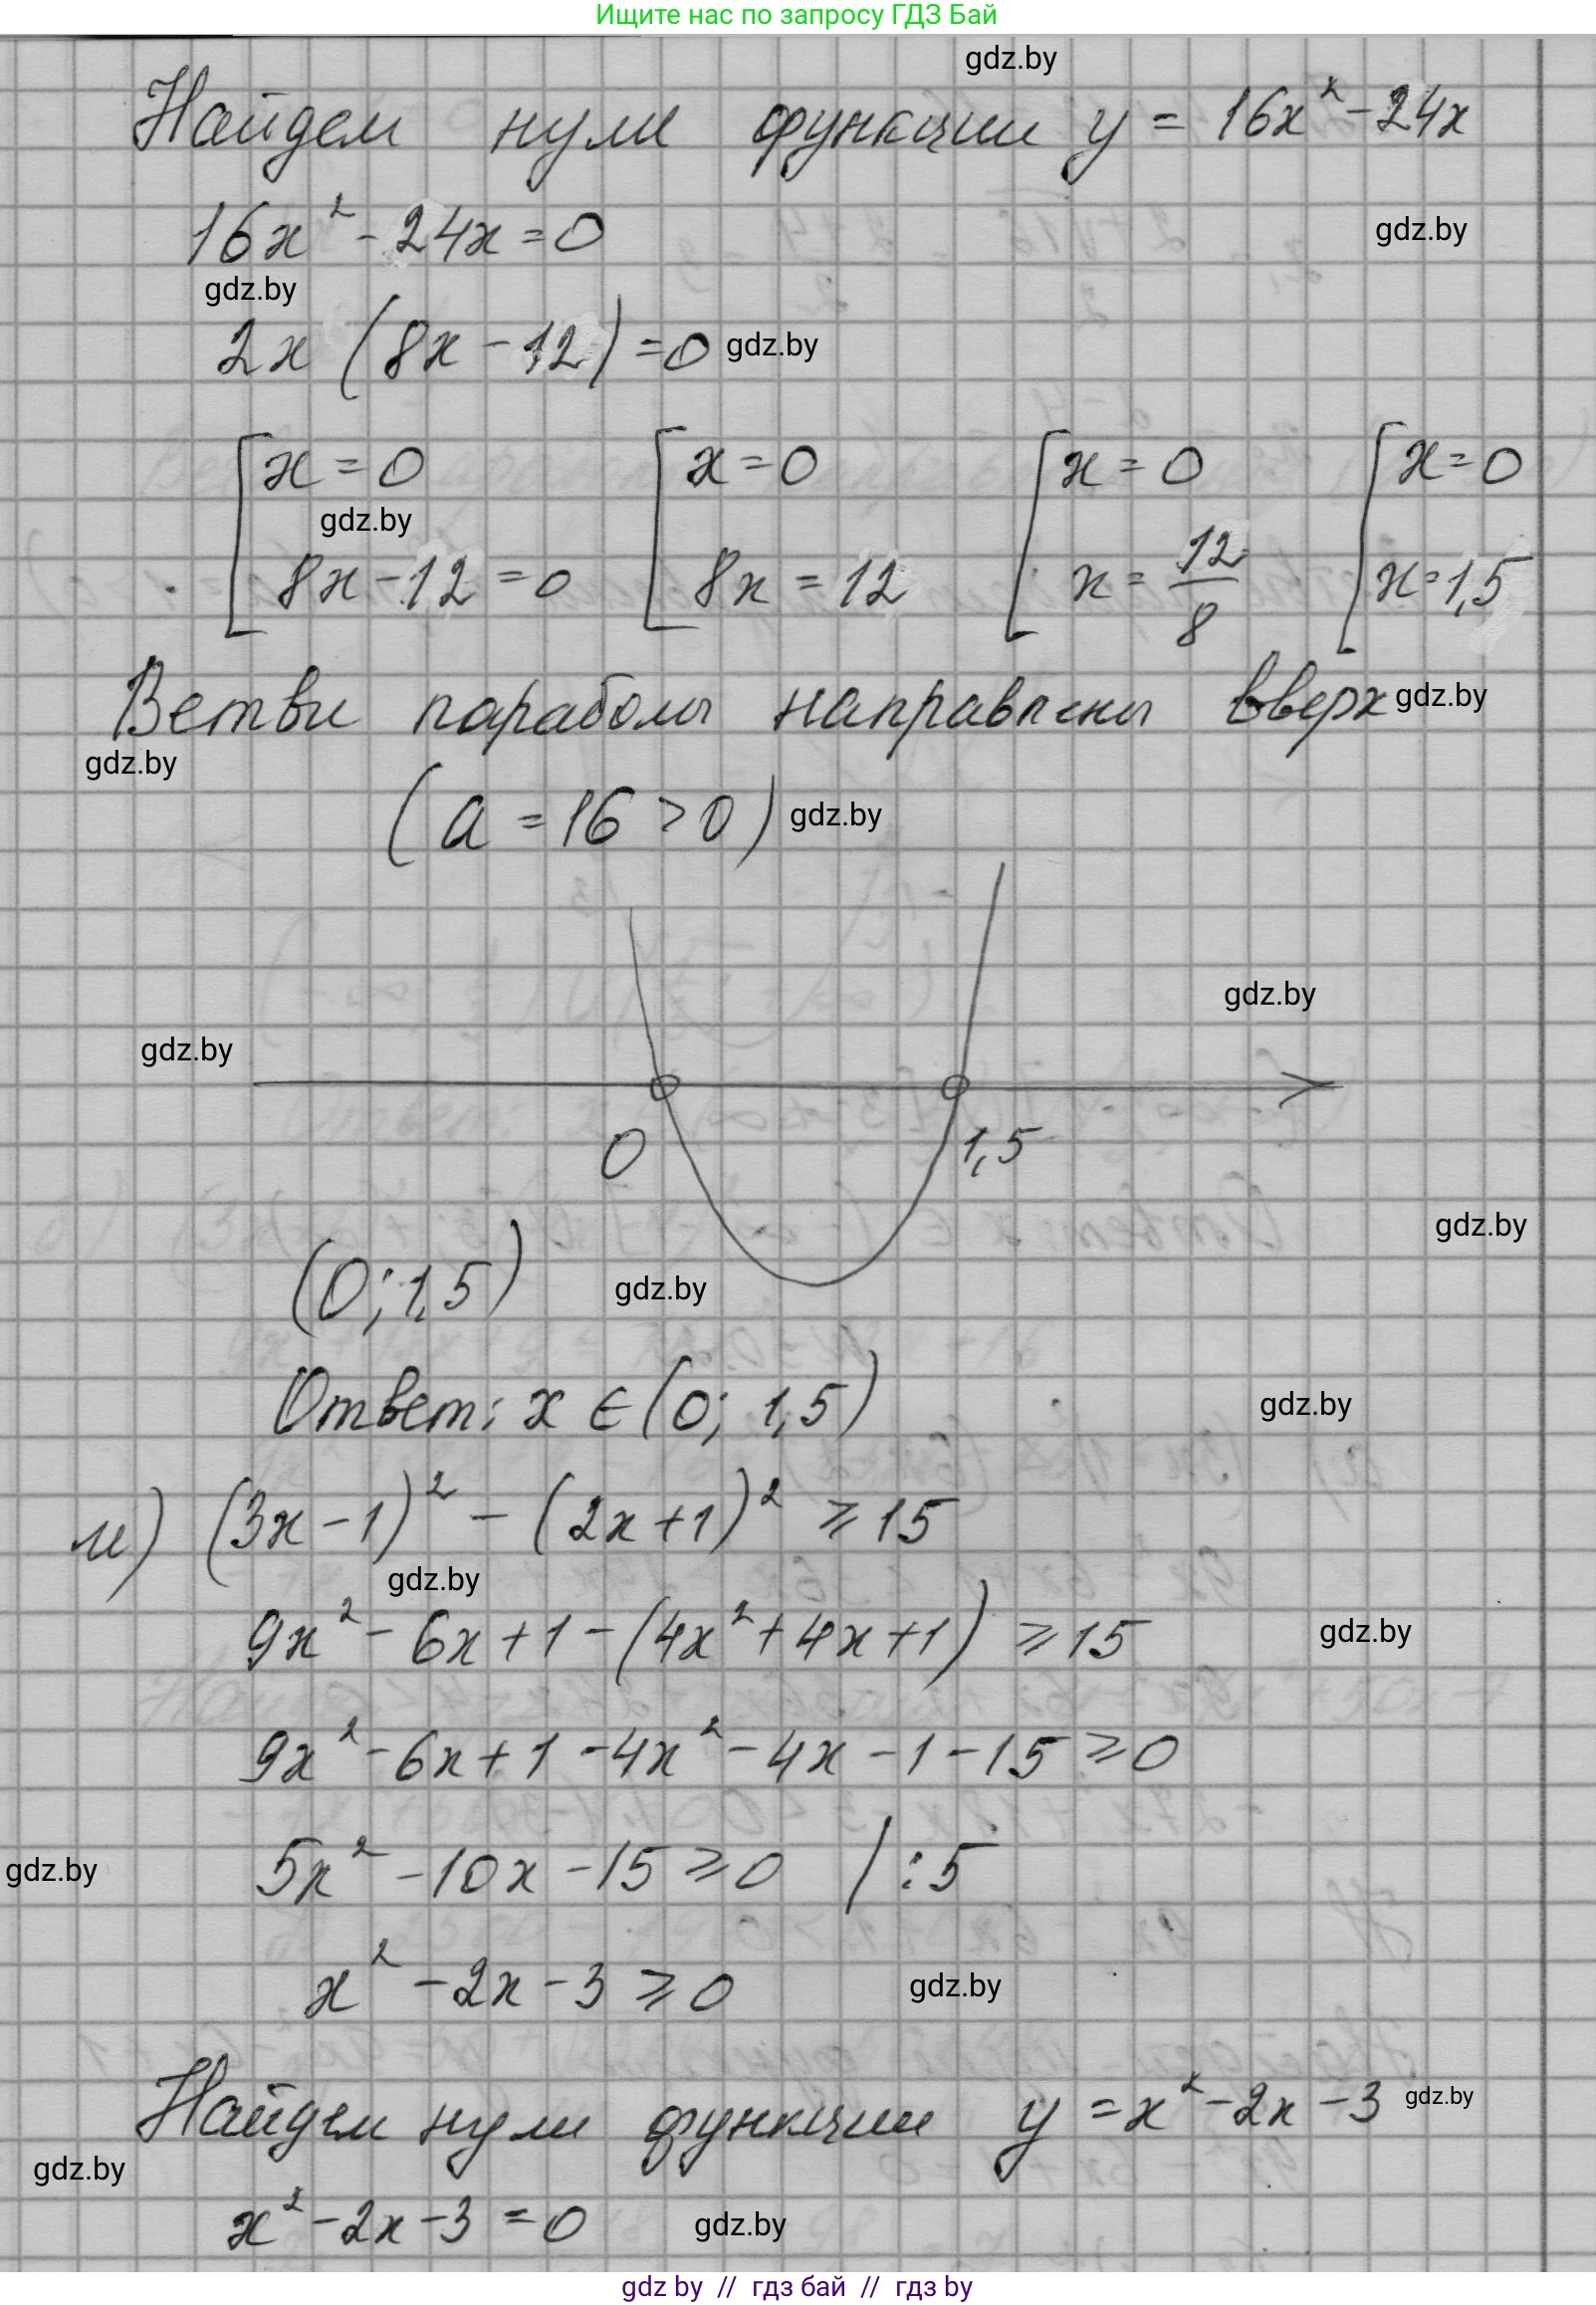 Ищите нас по запросу ГДЗ Бай
gdz.by
Найдем нули функции y = 16x² - 24x
16x² - 24x = 0
gdz.by
gdz.by
2x (8x - 12) = 0 gdz.by
[ x = 0 [ x = 0 [ x = 0 [ x = 0
gdz.by
8x - 12 = 0 8x = 12 x = 12/8 x = 1,5
Ветви параболы направлены вверх gdz.by
gdz.by
(a = 16 > 0) gdz.by
gdz.by
gdz.by
0 1,5
gdz.by
(0; 1,5) gdz.by
Ответ: x ∈ (0; 1,5) gdz.by
и) (3x - 1)² - (2x + 1)² ≥ 15
gdz.by
9x² - 6x + 1 - (4x² + 4x + 1) ≥ 15 gdz.by
9x² - 6x + 1 - 4x² - 4x - 1 - 15 ≥ 0
gdz.by 5x² - 10x - 15 ≥ 0 | : 5
x² - 2x - 3 ≥ 0 gdz.by
Найдем нули функции y = x² - 2x - 3 gdz.by
gdz.by
x² - 2x - 3 = 0 gdz.by
gdz by // гдз бай // гдз by